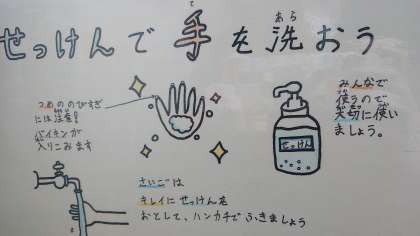 せっけんで手を洗おう
て
あら
つめののびすぎ
には注意!
バイキンが
入りこみます
みんなで
使うので
大切に使い
ましょう。
せっけん
さいごは
キレイにせっけんを
おとして、ハンカチでふきましょう